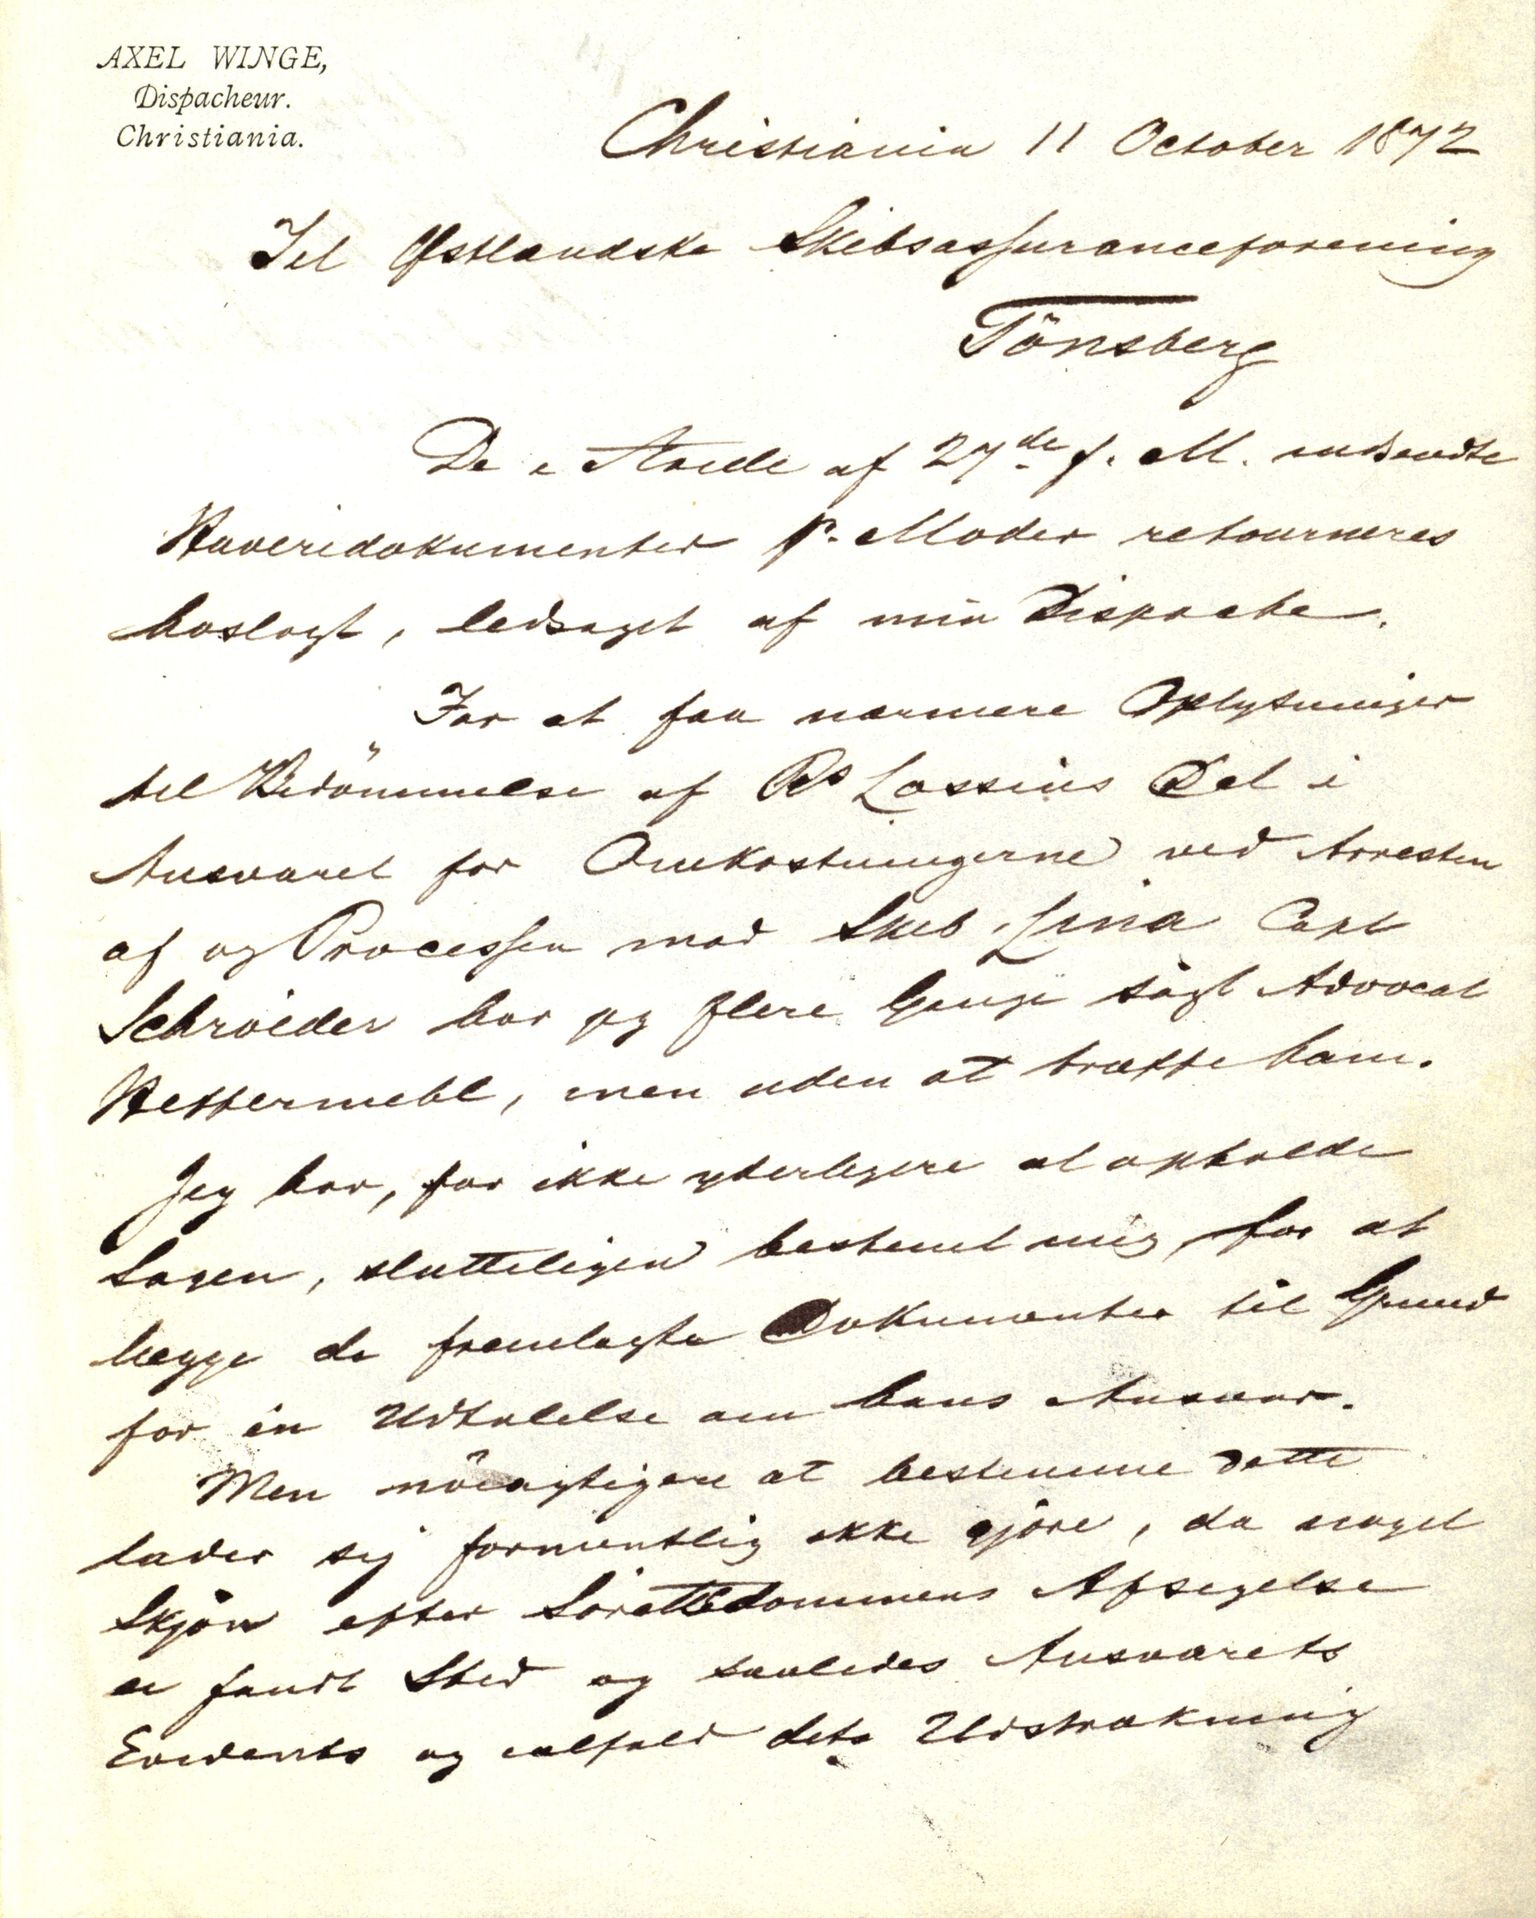 AXEL WINGE,
Dispacheur.
Christiania.
Christiania 11 October 1872
Til Østlandske Skibsassuranceforening
Tönsberg
De i Ærede af 27de f. M. indsendte
Havaridokumenter p. Moder retourneres
hoslagt, ledsaget af min Dispache.
For at faa nærmere Oplysninger
til Bedömmelse af Rs Lassius Del i
Ansvaret for Omkostningerne ved Arresten
af og Processen mod Skib Lina Capt
Schröder har jeg flere Gange sögt Advocat
Heftermehl, men uden at træffe ham.
Jeg har, for ikke yderligere at opholde
Sagen, slutteligen bestemt mig for at
lægge de fremlagte Dokumenter til Grund
for en Udtalelse om hans Ansvar.
Men nöiagtigere at bestemme dette
lader sig formentlig ikke gjöre, da noget
Skjön efter Söretsdommens Afsigelse
ei fandt Sted og saaledes Ansvarets
Evidents og ialfald dets Udstrækning